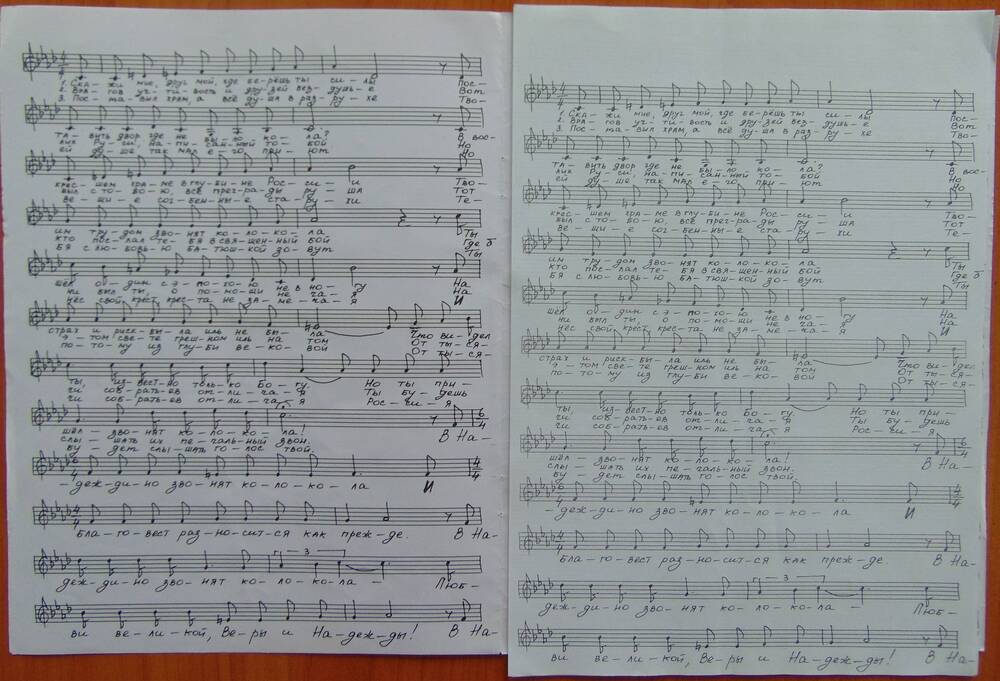 1. Ска – жи мне, друг мой, где бе – рёшь ты си – лы Пос –
2. Вра – гов уч – ти – вость и дру – зей без – душь – е Вот
3. Пос – та – вил храм, а всё ду – ша в раз – ру – хе Тво –
та – вить двор где не бы – ло ко – ла? В вос –
лик Ру – си, на – пи – сан – ный то – бой Но
ей ду – ше так мал е – го при – ют Но
крес – шем хра – ме в глу – би – не Рос – си – и Тво –
был с то – бо – ю, всё прег – ра – ды ру – шл Тот
ве – щи – е сог – бен – ны – е ста – ру – ги Те –
им тру – дом зво – нят ко – ло – ко – ла Ты
кто пос – лал те – бя в свя – щен – ный бой Где б
бя с лю – бовь – ю ба – тюш – кой зо – вут Ты
шёл од – дин с э – по – хо – ю не в но – гу На
ни был ты, о по – мо – щи не ча – я На
нёс свой крест, крес – та не за – ме – ча – я И
страх и риск – бы – ла иль не бы – ла Что ви – дел
э – том све – те греш – ном иль на том От ты – ся –
по – то – му из глу – би ве – ко – вой От ты – ся –
ты, из – вест – но толь – ко Бо – гу. Но ты при –
чи соб – рать – ев от – ли – ча – я Ты бу – дешь
чи соб – рать – ев от – ли – ча – я Рос – си – я
шёл – зво – нят ко – ло – ко – ла! В На –
слы – шать их пе – чаль – ный звон.
бу – дет слы – шать го – лос твой.
– деж – ди – но зво – нят ко – ло – ко – ла И
Бла – го – вест раз – но – сит – ся как преж – де. В На –
деж – ди – но зво – нят ко – ло – ко – ла – Люб –
ви ве – ли – кой, Ве – ры и На – деж – ды! В На –
1. Ска – жи мне, друг мой, где бе – рёшь ты си – лы Пос –
2. Вра – гов уч – ти – вость и дру – зей без – душь – е Вот
3. Пос – та – вил храм, а всё ду – ша в раз – ру – хе Тво –
та – вить двор где не бы – ло ко – ла? В вос –
лик Ру – си, на – пи – сан – ный то – бой Но
ей ду – ше так мал е – го при – ют Но
крес – шем хра – ме в глу – би – не Рос – си – и Тво –
был с то – бо – ю, всё прег – ра – ды ру – шл Тот
ве – щи – е сог – бен – ны – е ста – ру – ги Те –
им тру – дом зво – нят ко – ло – ко – ла Ты
кто пос – лал те – бя в свя – щен – ный бой Где б
бя с лю – бовь – ю ба – тюш – кой зо – вут Ты
шёл од – дин с э – по – хо – ю не в но – гу На
ни был ты, о по – мо – щи не ча – я На
нёс свой крест, крес – та не за – ме – ча – я И
страх и риск – бы – ла иль не бы – ла Что ви – дел
э – том све – те греш – ном иль на том От ты – ся –
по – то – му из глу – би ве – ко – вой От ты – ся –
ты, из – вест – но толь – ко Бо – гу. Но ты при –
чи соб – рать – ев от – ли – ча – я Ты бу – дешь
чи соб – рать – ев от – ли – ча – я Рос – си – я
шёл – зво – нят ко – ло – ко – ла! В На –
слы – шать их пе – чаль – ный звон.
бу – дет слы – шать го – лос твой.
– деж – ди – но зво – нят ко – ло – ко – ла И
Бла – го – вест раз – но – сит – ся как преж – де. В На –
деж – ди – но зво – нят ко – ло – ко – ла – Люб –
ви ве – ли – кой, Ве – ры и На – деж – ды! В На –